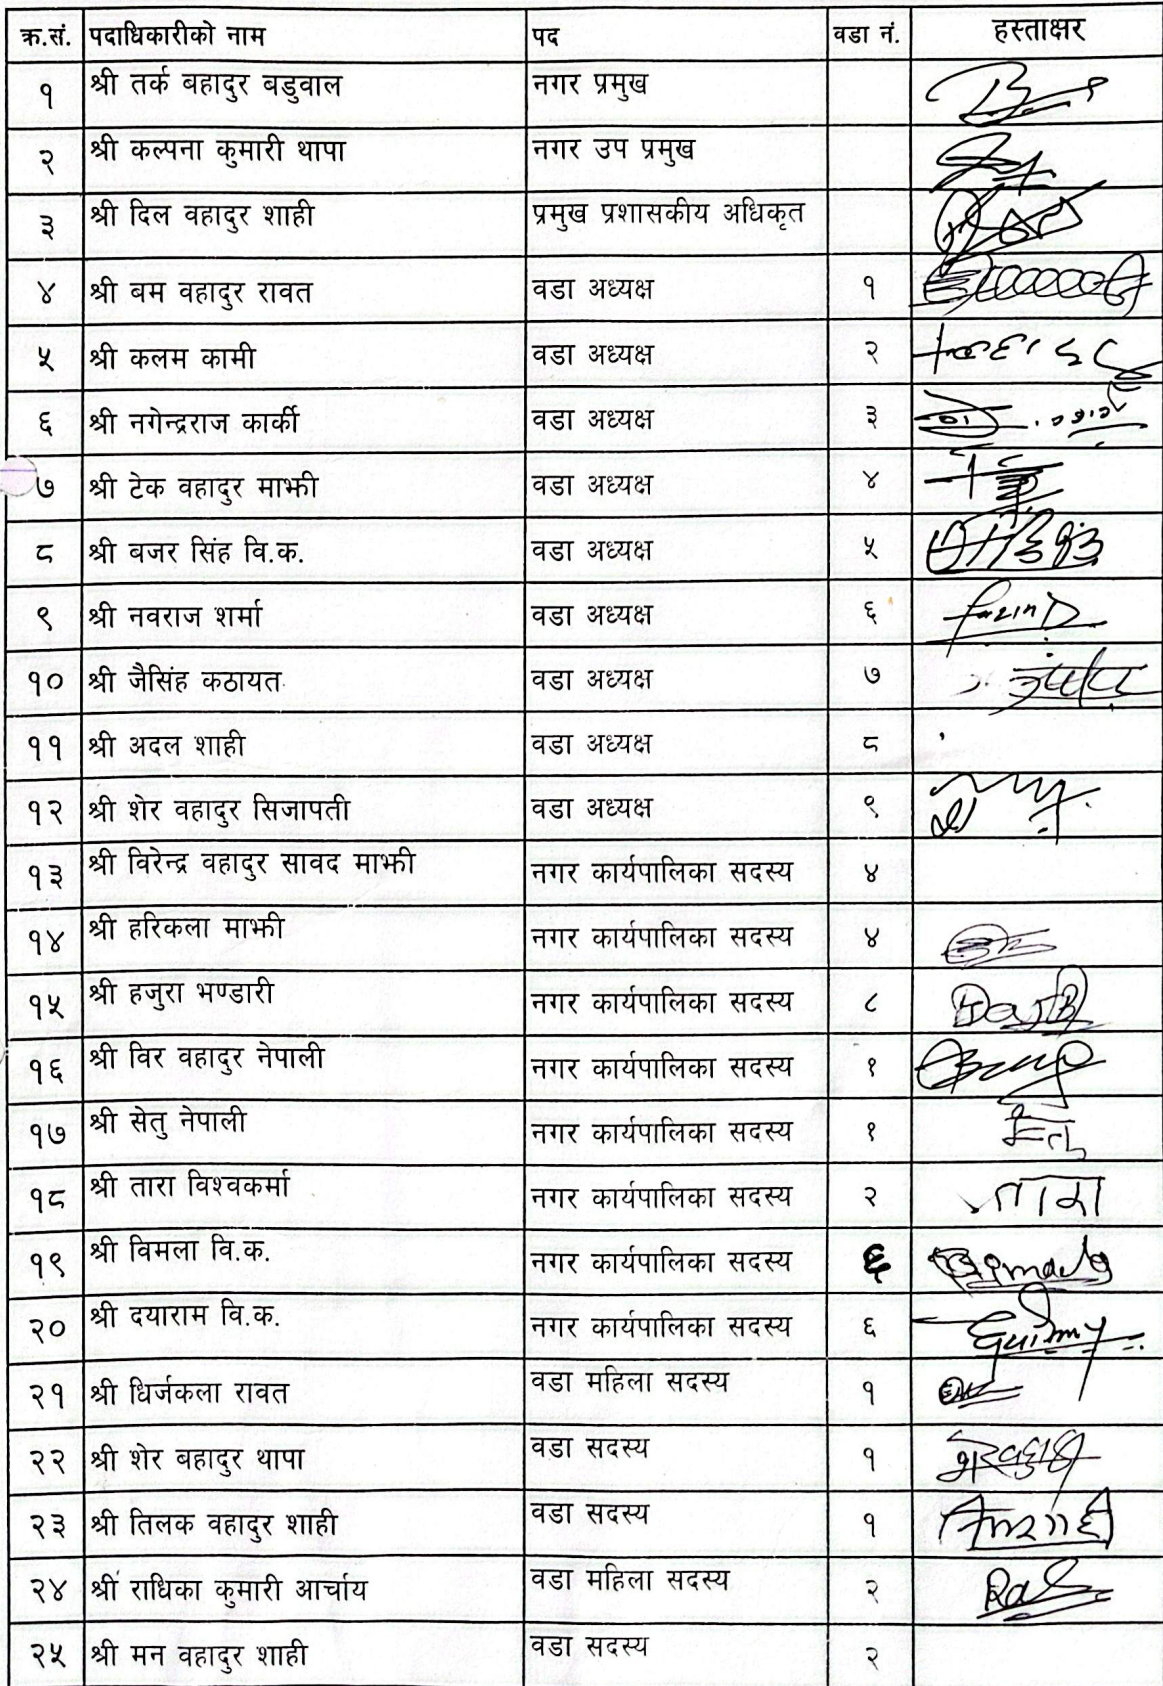 क्र.सं. पदाधिकारीको नाम पद वडा नं. हस्ताक्षर
१ श्री तर्क बहादुर बडुवाल नगर प्रमुख
२ श्री कल्पना कुमारी थापा नगर उप प्रमुख
३ श्री दिल वहादुर शाही प्रमुख प्रशासकीय अधिकृत
४ श्री बम वहादुर रावत वडा अध्यक्ष १
५ श्री कलम कामी वडा अध्यक्ष २
६ श्री नगेन्द्रराज कार्की वडा अध्यक्ष ३
७ श्री टेक वहादुर माझी वडा अध्यक्ष ४
८ श्री बजर सिंह वि.क. वडा अध्यक्ष ५
९ श्री नवराज शर्मा वडा अध्यक्ष ६
१० श्री जैसिंह कठायत वडा अध्यक्ष ७
११ श्री अदल शाही वडा अध्यक्ष ८
१२ श्री शेर वहादुर सिजापती वडा अध्यक्ष ९
१३ श्री विरेन्द्र वहादुर सावद माझी नगर कार्यपालिका सदस्य ४
१४ श्री हरिकला माझी नगर कार्यपालिका सदस्य ४
१५ श्री हजुरा भण्डारी नगर कार्यपालिका सदस्य ८
१६ श्री विर वहादुर नेपाली नगर कार्यपालिका सदस्य १
१७ श्री सेतु नेपाली नगर कार्यपालिका सदस्य १
१८ श्री तारा विश्वकर्मा नगर कार्यपालिका सदस्य २ तारा
१९ श्री विमला वि.क. नगर कार्यपालिका सदस्य ६
२० श्री दयाराम वि.क. नगर कार्यपालिका सदस्य ६
२१ श्री धिर्जकला रावत वडा महिला सदस्य १
२२ श्री शेर बहादुर थापा वडा सदस्य १
२३ श्री तिलक वहादुर शाही वडा सदस्य १
२४ श्री राधिका कुमारी आर्चाय वडा महिला सदस्य २
२५ श्री मन वहादुर शाही वडा सदस्य २